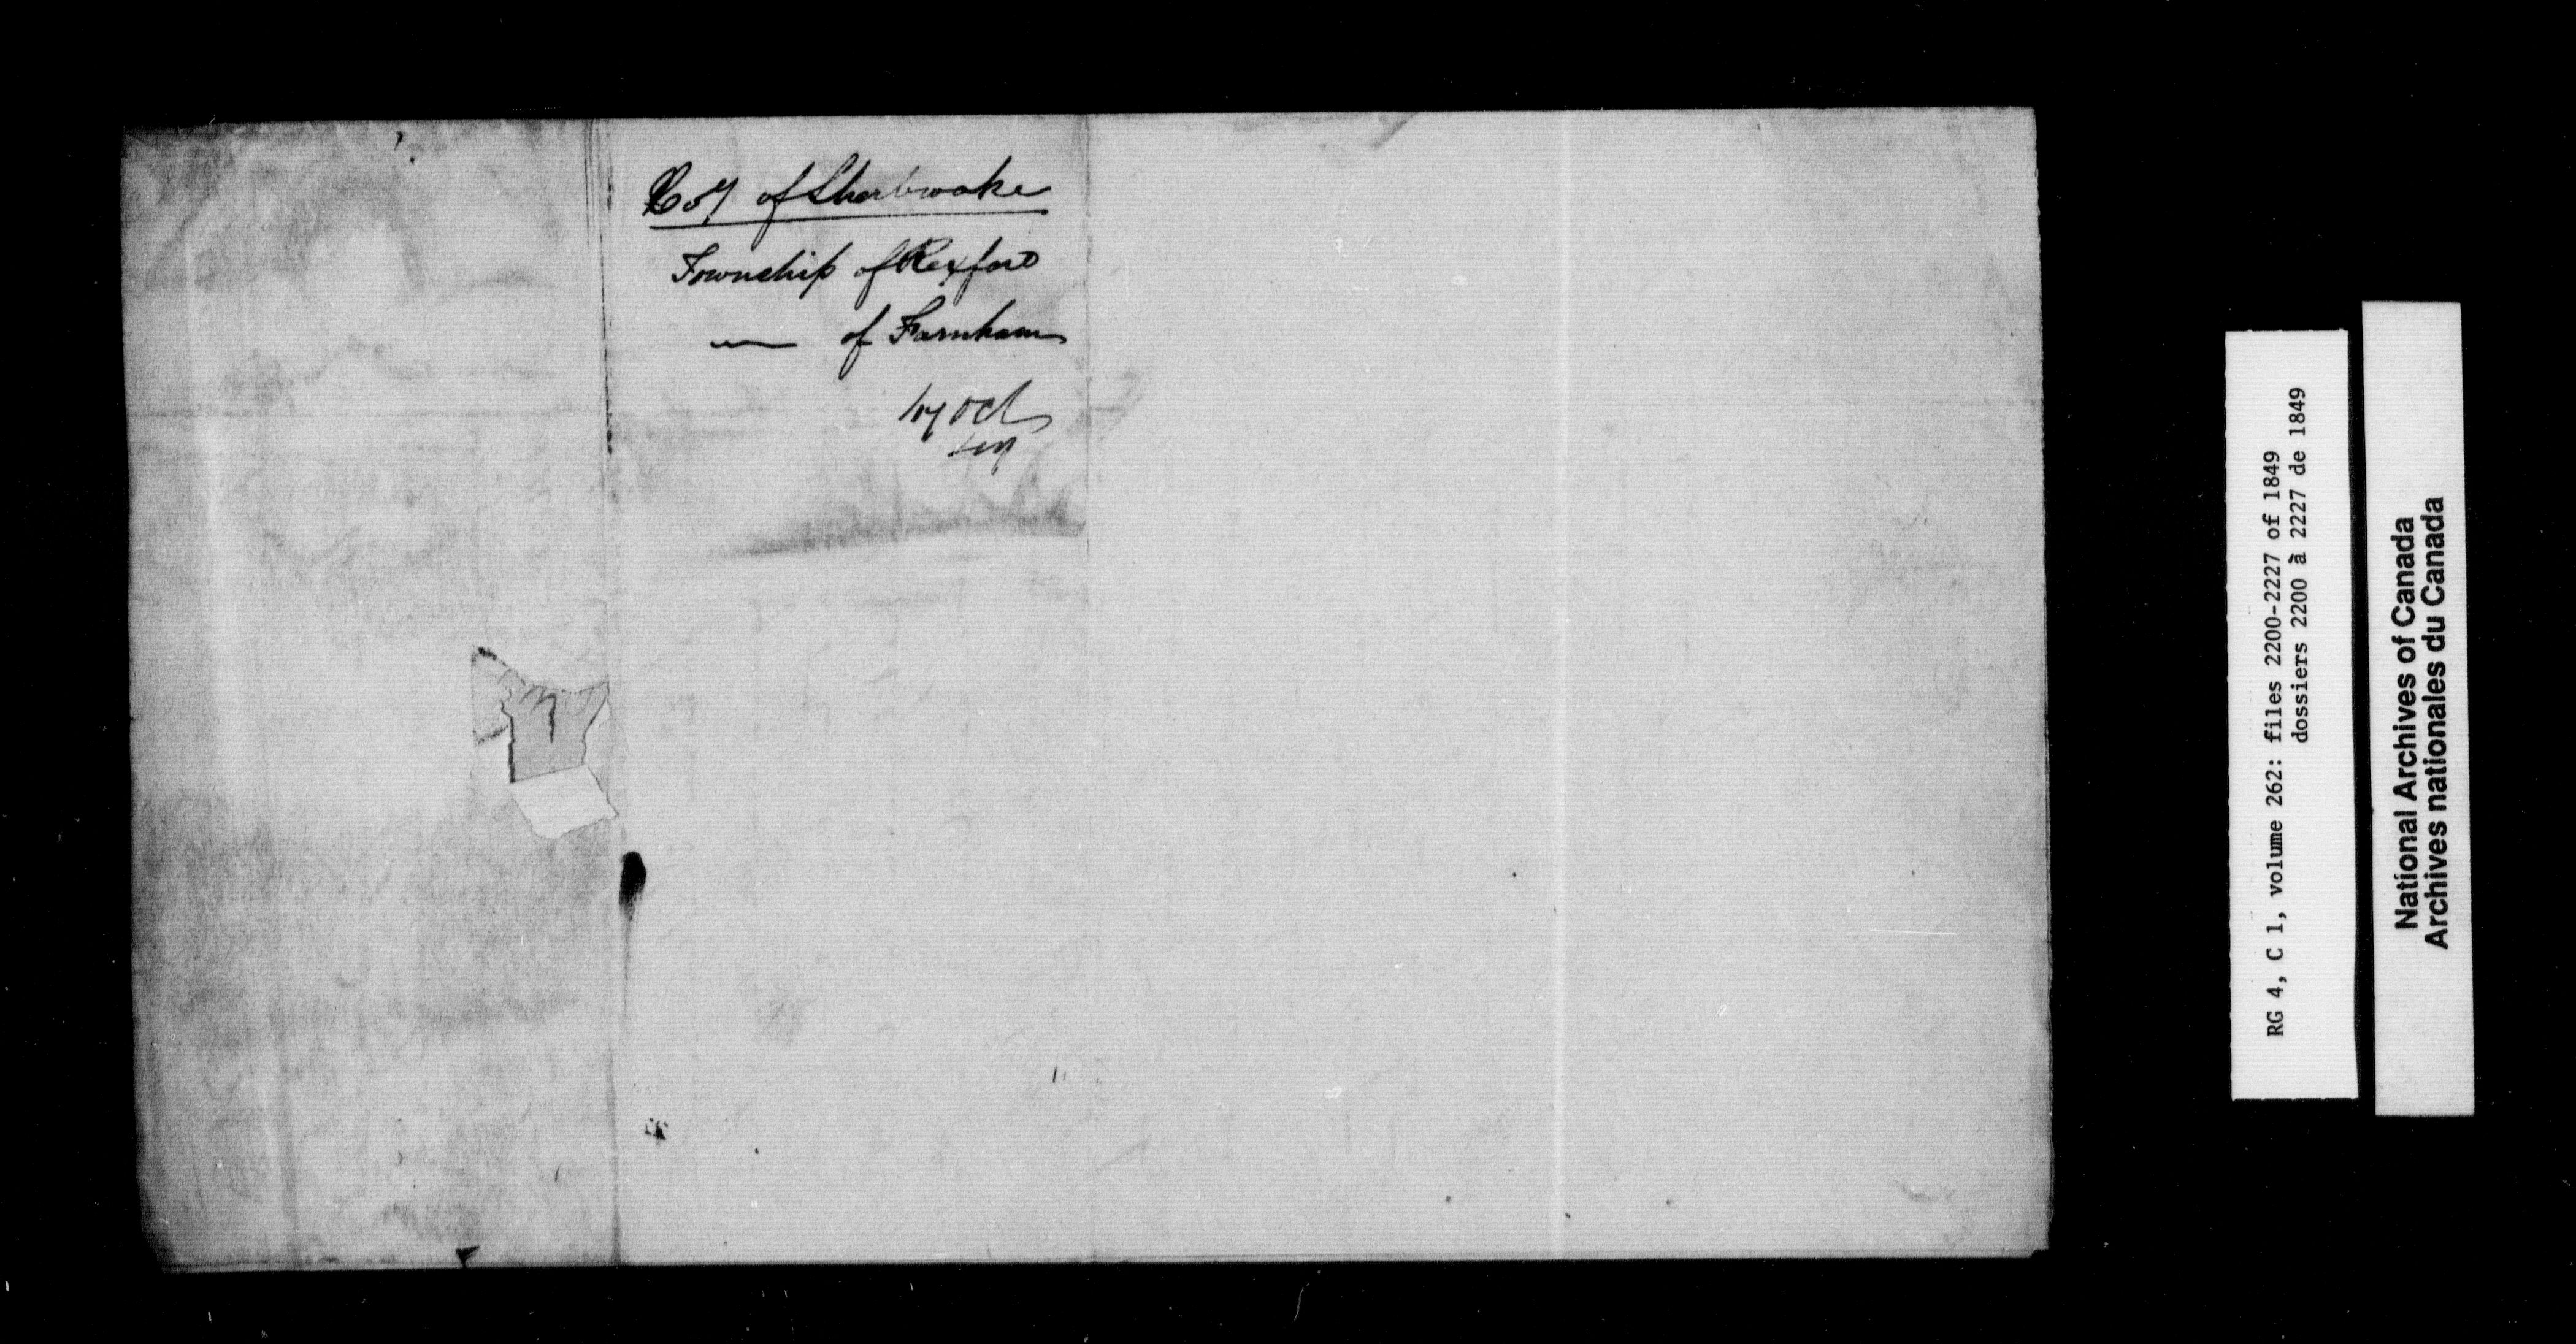 Coy of Sherbrooke
Township of Rexford
— of Farnham
Oct
RG 4, C 1, volume 262: files 2200-2227 of 1849
dossiers 2200 à 2227 de 1849
National Archives of Canada
Archives nationales du Canada